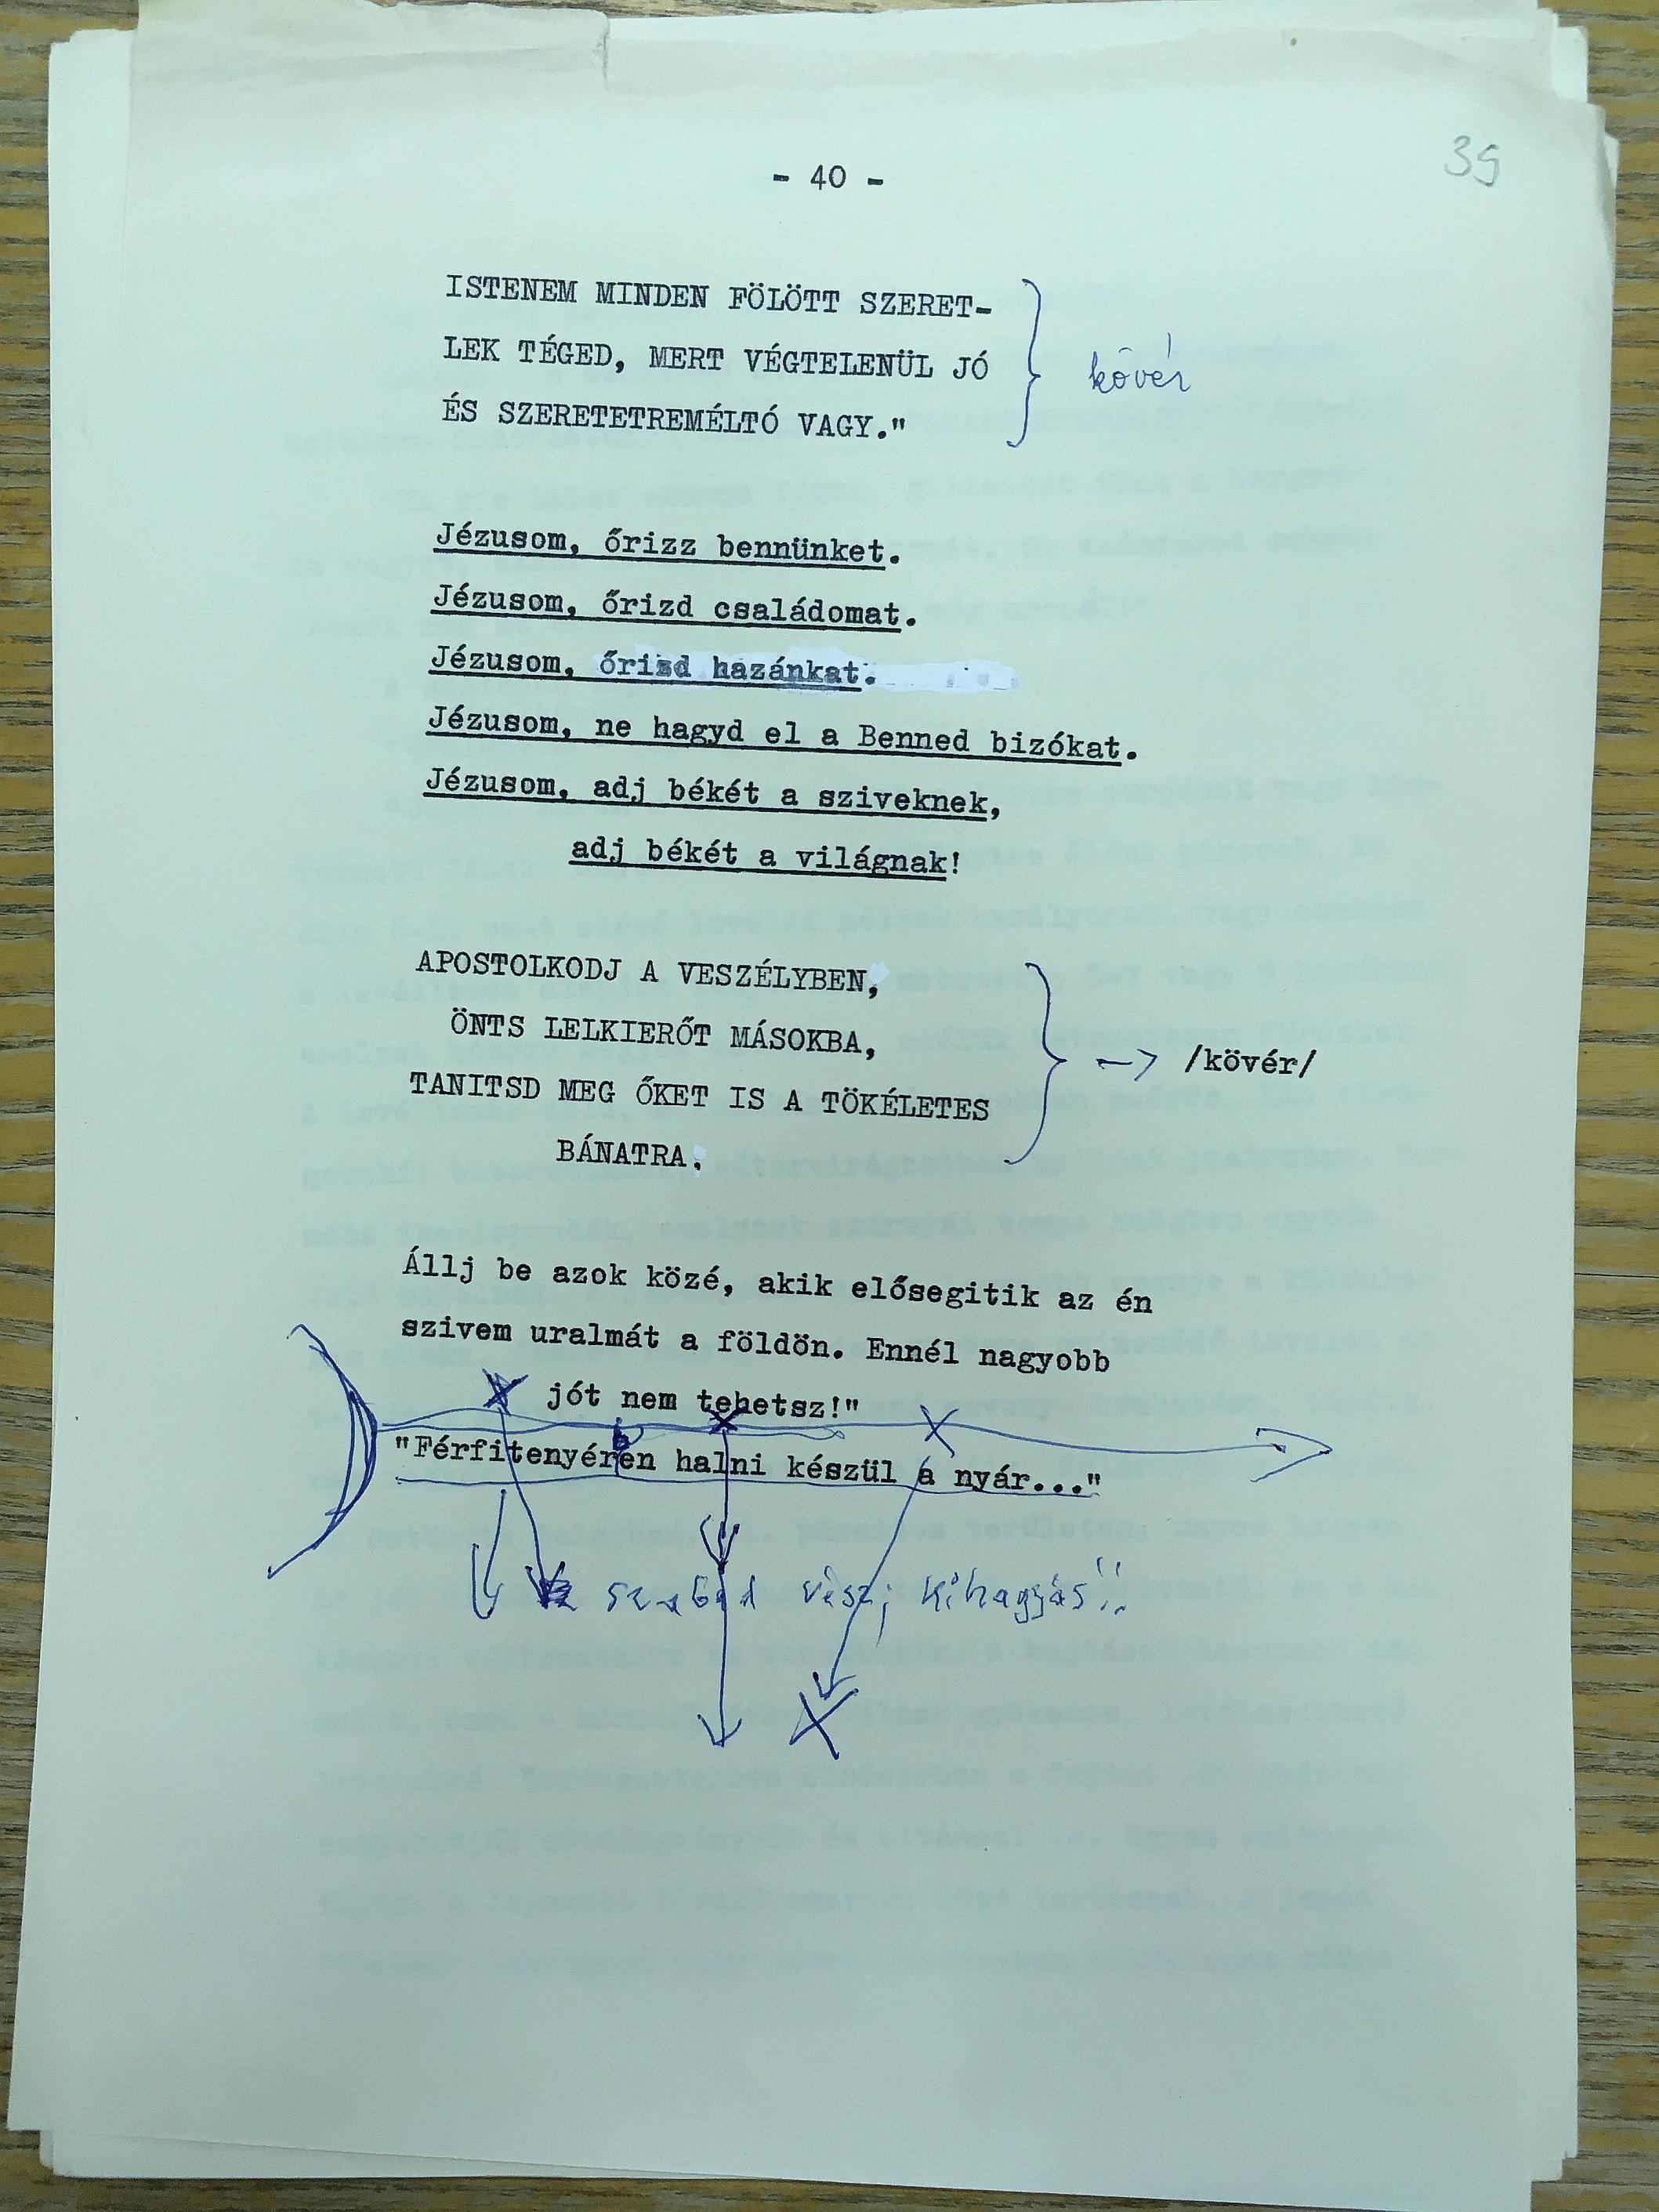 - 40 -
39
ISTENEM MINDEN FÖLÖTT SZERET-
LEK TÉGED, MERT VÉGTELENÜL JÓ
ÉS SZERETETREMÉLTÓ VAGY."
kövér
Jézusom, őrizz bennünket.
Jézusom, őrizd családomat.
Jézusom, őrizd hazánkat.
Jézusom, ne hagyd el a Benned bizókat.
Jézusom, adj békét a sziveknek,
adj békét a világnak!
APOSTOLKODJ A VESZÉLYBEN,
ÖNTS LELKIERŐT MÁSOKBA,
TANITSD MEG ŐKET IS A TÖKÉLETES
BÁNATRA.
/kövér/
Állj be azok közé, akik elősegitik az én
szivem uralmát a földön. Ennél nagyobb
jót nem tehetsz!"
"Férfitenyéren halni készül a nyár..."
szabad rész; kihagyás!!